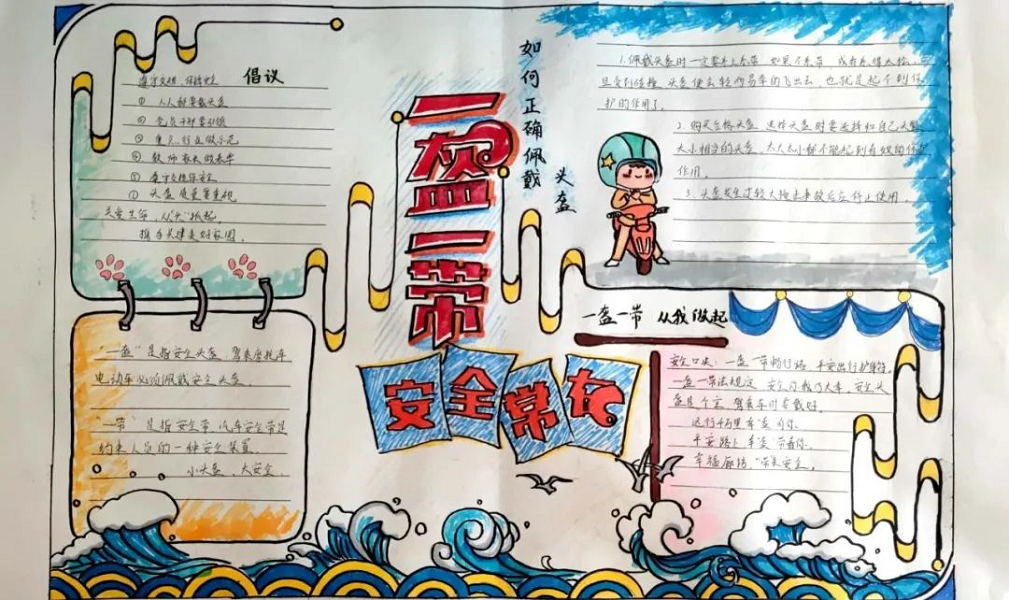 倡议
遵守交规,保障安全
① 人人都要戴头盔
② 党员干部要引领
③ 重点行业做示范
④ 教师家长做表率
⑤ 遵守交规保安全
⑥ 头盔质量要重视
关爱生命,从"头"抓起。
携手共建美好家园。
一盔一带
安全常在
如何正确佩戴
头盔
1.佩戴头盔时一定要系上系带 如果不系带 或者系得太松,一
旦受到碰撞 头盔便会轻而易举的飞出去,也就是起不到保
护的作用了。
2.购买合格头盔 选择头盔时要选择和自己头型
大小相当的头盔,太大太小都不能起到有效的保护
作用。
3.头盔发生过较大撞击事故后应停止使用
"一盔"是指安全头盔,驾乘摩托车
电动车必须佩戴安全头盔。
"一带"是指安全带,汽车安全带是
约束人员的一种安全装置。
小头盔,大安全。
一盔一带 从我做起
安全口决:一盔一带畅行福 平安出行护身符。
一盔一带法规定
盔是个宝 驾乘车时要戴好。
平安路上
幸福廊坊"带"来安全。